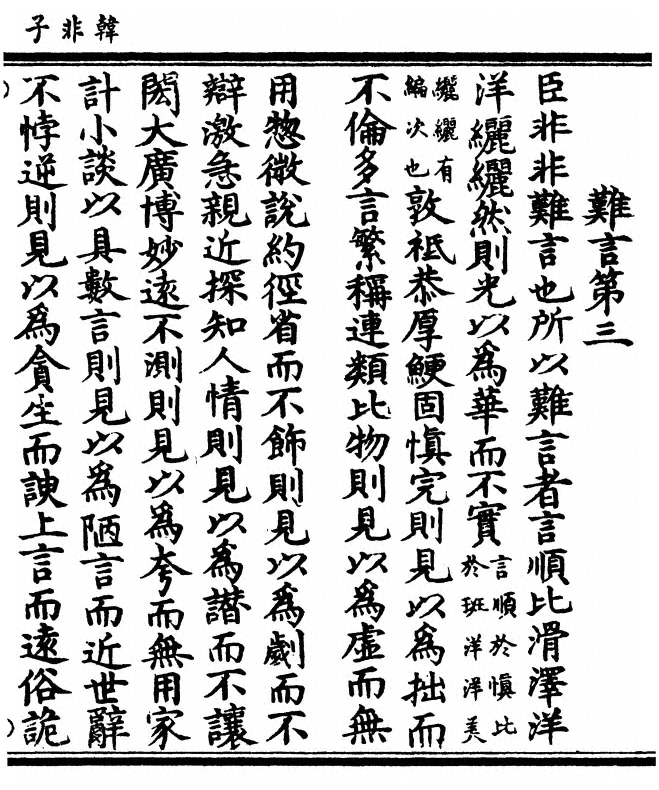 韓非子
難言第三
臣非非難言也所以難言者言順比滑澤洋
洋纚纚然則光以爲華而不實言順於愼比於班洋洋美
纚纚有編次也敦祗恭厚鯁固愼完則見以爲拙而
不倫多言繁稱連類比物則見以爲虛而無
用惣微說約徑省而不飾則見以爲劌而不
辯激急親近探知人情則見以爲譖而不讓
閎大廣博妙遠不測則見以爲夸而無用家
計小談以具數言則見以爲陋言而近世辭
不悖逆則見以爲貪生而諛上言而遠俗詭